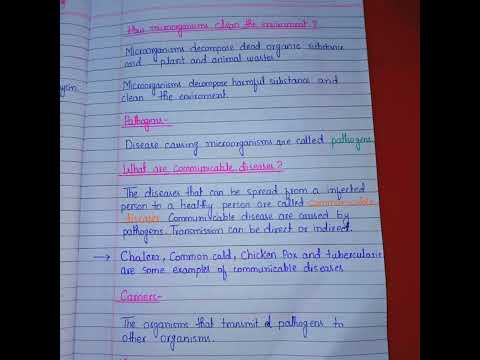 How microorganisms clean the environment?
Microorganisms decompose dead organic substance
and plant and animal wastes
Microorganisms decompose harmful substance and
clean the enviroment.
Pathogens-
Disease causing microorganisms are called pathogens.
What are communicable diseases?
The diseases that can be spread from a infected
person to a healthy person are called communicable
diseases. Communicable disease are caused by
pathogens. Transmission can be direct or indirect.
→ Chalera, Common cold, Chicken Pox and tuberculosis
are some examples of communicable diseases
Carriers-
The organisms that transmit pathogens to
other organisms.